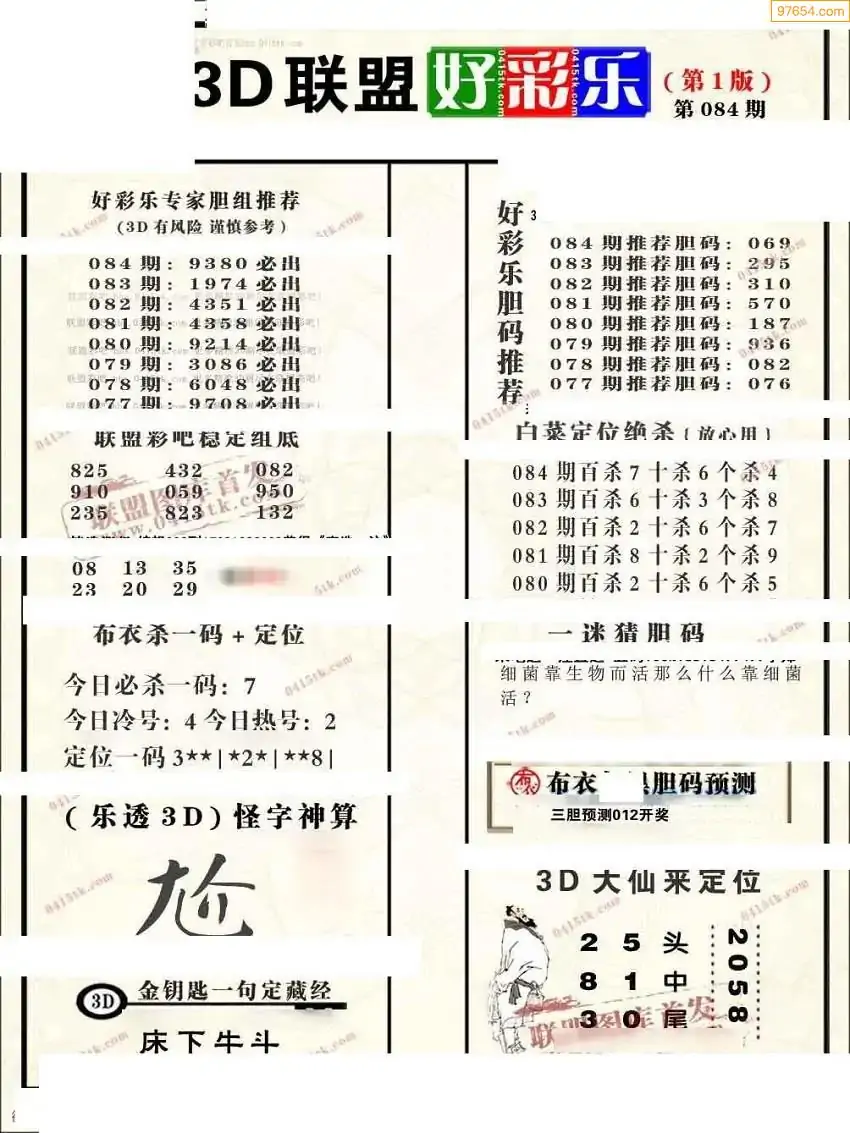 97654.com
3D联盟好彩乐
(第1版)
第084期
好彩乐专家胆组推荐
(3D有风险 谨慎参考)
084期: 9380必出
083期: 1974必出
082期: 4351必出
081期: 4358必出
080期: 9214必出
079期: 3086必出
078期: 6048必出
077期: 9708必出
联盟彩吧稳定组底
825 432 082
910 059 950
235 823 132
联盟图库首发
www.0415tk.com
08 13 35
23 20 29
布衣杀一码+定位
今日必杀一码: 7
今日冷号: 4 今日热号: 2
定位一码3**|*2*|**8|
(乐透3D)怪字神算
尬
3D 金钥匙一句定藏经
床下牛斗
好彩乐胆码推荐
3
084期推荐胆码: 069
083期推荐胆码: 295
082期推荐胆码: 310
081期推荐胆码: 570
080期推荐胆码: 187
079期推荐胆码: 936
078期推荐胆码: 082
077期推荐胆码: 076
白菜定位绝杀{放心用}
084期百杀7十杀6个杀4
083期百杀6十杀3个杀8
082期百杀2十杀6个杀7
081期百杀8十杀2个杀9
080期百杀2十杀6个杀5
一迷猜胆码
细菌靠生物而活那么什么靠细菌
活?
布衣 胆码预测
三胆预测012开奖
3D大仙来定位
2 5 头
8 1 中
3 0 尾
2058
联盟图库首发
0415tk.com